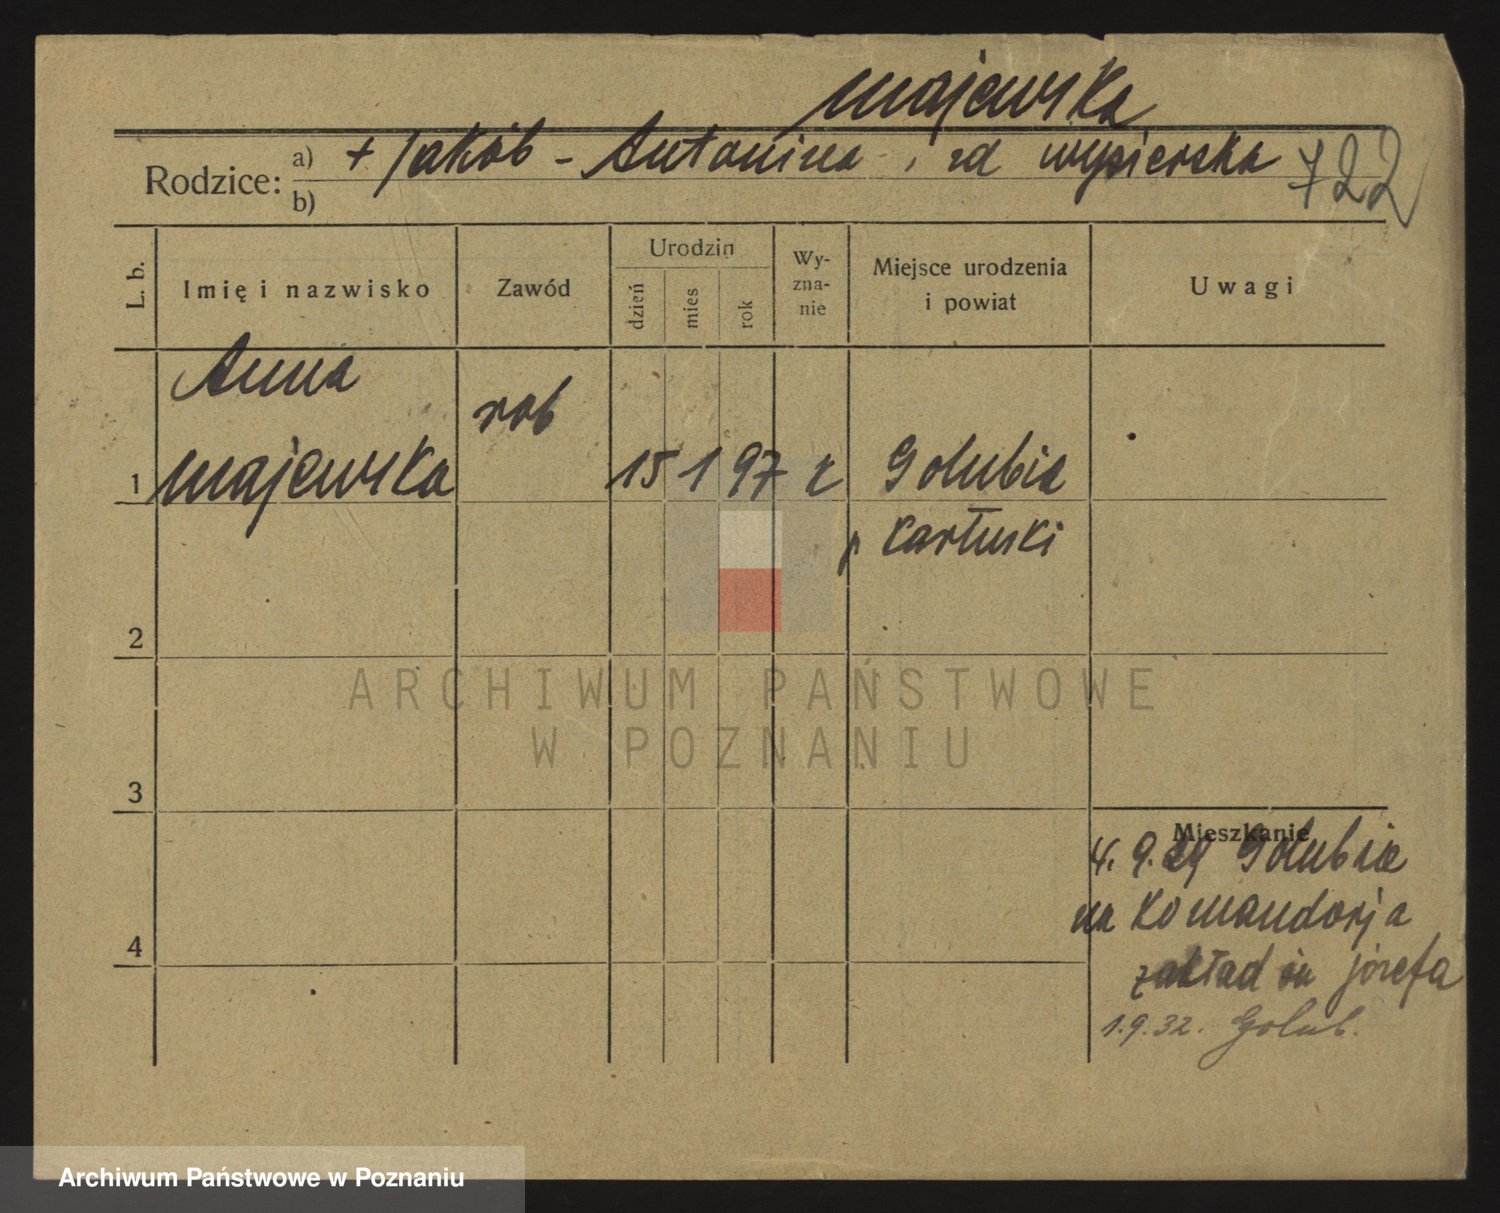 Majewska
Rodzice: a) + Jakób - Antonina, zd Wysiecka 722
b)
L. b. Imię i nazwisko Zawód Urodzin dzień mies rok Wyznanie Miejsce urodzenia i powiat Uwagi
Anna rob
1 Majewska 15 1 97 r Golubia
p Kartuski
2
ARCHIWUM PAŃSTWOWE
W POZNANIU
3
Mieszkanie
4. 9. 29 Golubia
na Komandorja
4 zakład św Józefa
1.9.32. Golub.
Archiwum Państwowe w Poznaniu